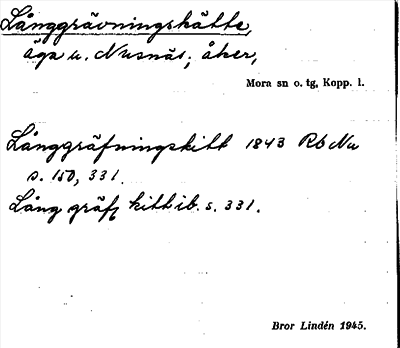 Långgrävningskätte,
äga u. Nusnäs; åker,
Mora sn o. tg, Kopp. l.
Långgräfningskitt 1843 Rb Nu
s. 150, 331.
Lång gräf kitt ib. s. 331.
Bror Lindén 1945.